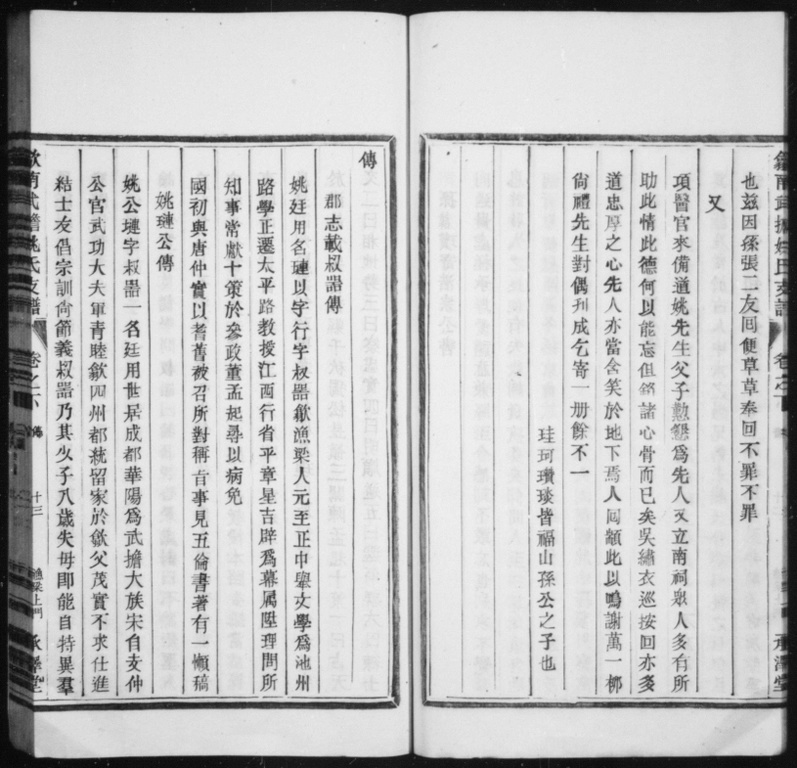 也茲因孫張二友囘便草草奉囘不罪不罪
又
項醫官來備道姚先生父子懃懇爲先人又立南祠衆人多有所
助此情此德何以能忘但銘諸心骨而已矣吳繡衣巡按回亦多
道忠厚之心先人亦當含笑於地下焉人囘類此以鳴謝萬一梛
尙禮先生對偶刋成乞寄一册餘不一
珪珂瓚琰皆福山孫公之子也
傳
郡志載叔器傳
姚廷用名璉以字行字叔器歙漁梁人元至正中舉文學爲池州
路學正遷太平路教授江西行省平章星吉辟爲幕属陞理問所
知事常獻十策於參政董孟起尋以病免
國初與唐仲實以耆舊被召所對稱旨事見五倫書著有一懶稿
姚璉公傳
姚公璉字叔器一名廷用世居成都華陽爲武擔大族宋自友仲
公官武功大夫軍青睦歙四州都統留家於歙父茂實不求仕進
結士友倡宗訓尙節義叔器乃其少子八歲失母即能自持異羣
歙南武擔姚氏支譜 卷之下 傳 十三 漁梁上門 承澤堂